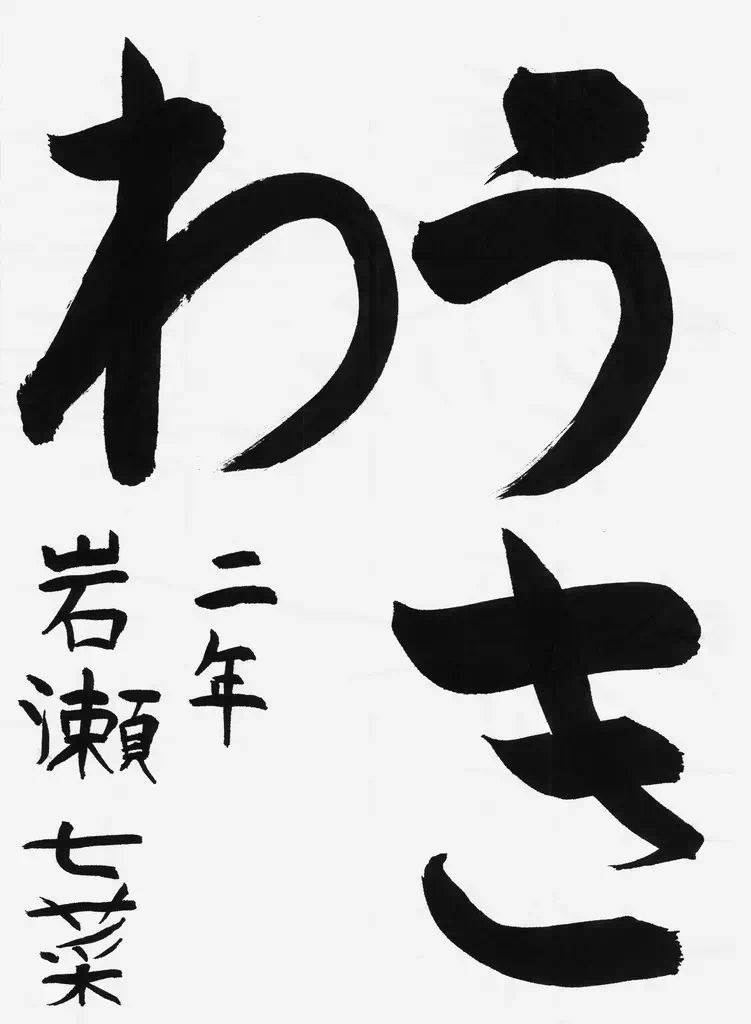 うき
わ
二年
岩瀬七菜